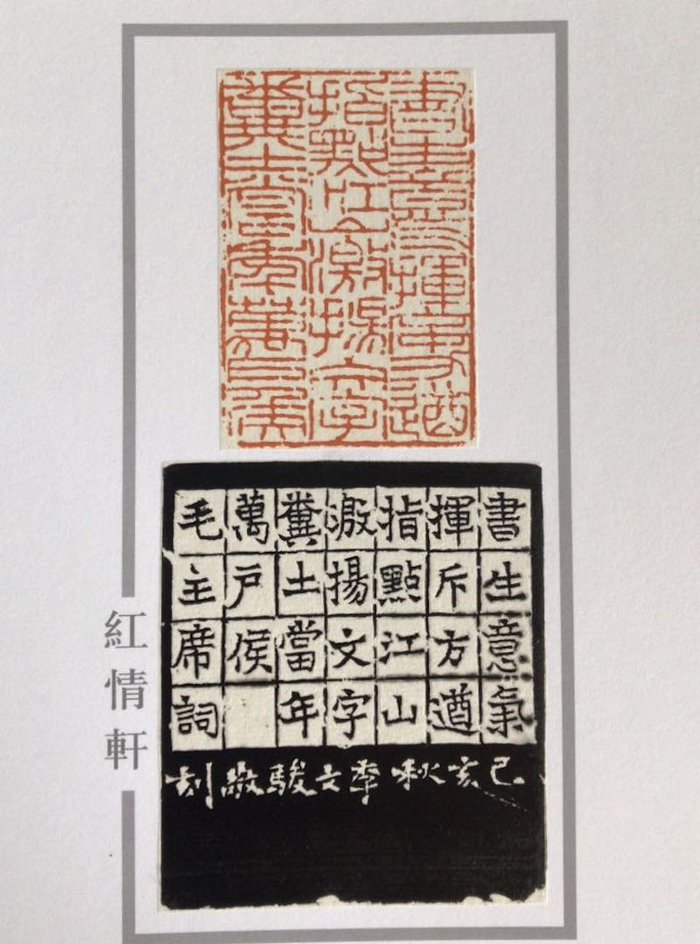 書生意氣揮斥方遒
指點江山激揚文字
糞土當年萬戶侯
書生意氣
揮斥方遒
指點江山
激揚文字
糞土當年
萬戶侯
毛主席詞
己亥秋李文駿敬刻
紅情軒